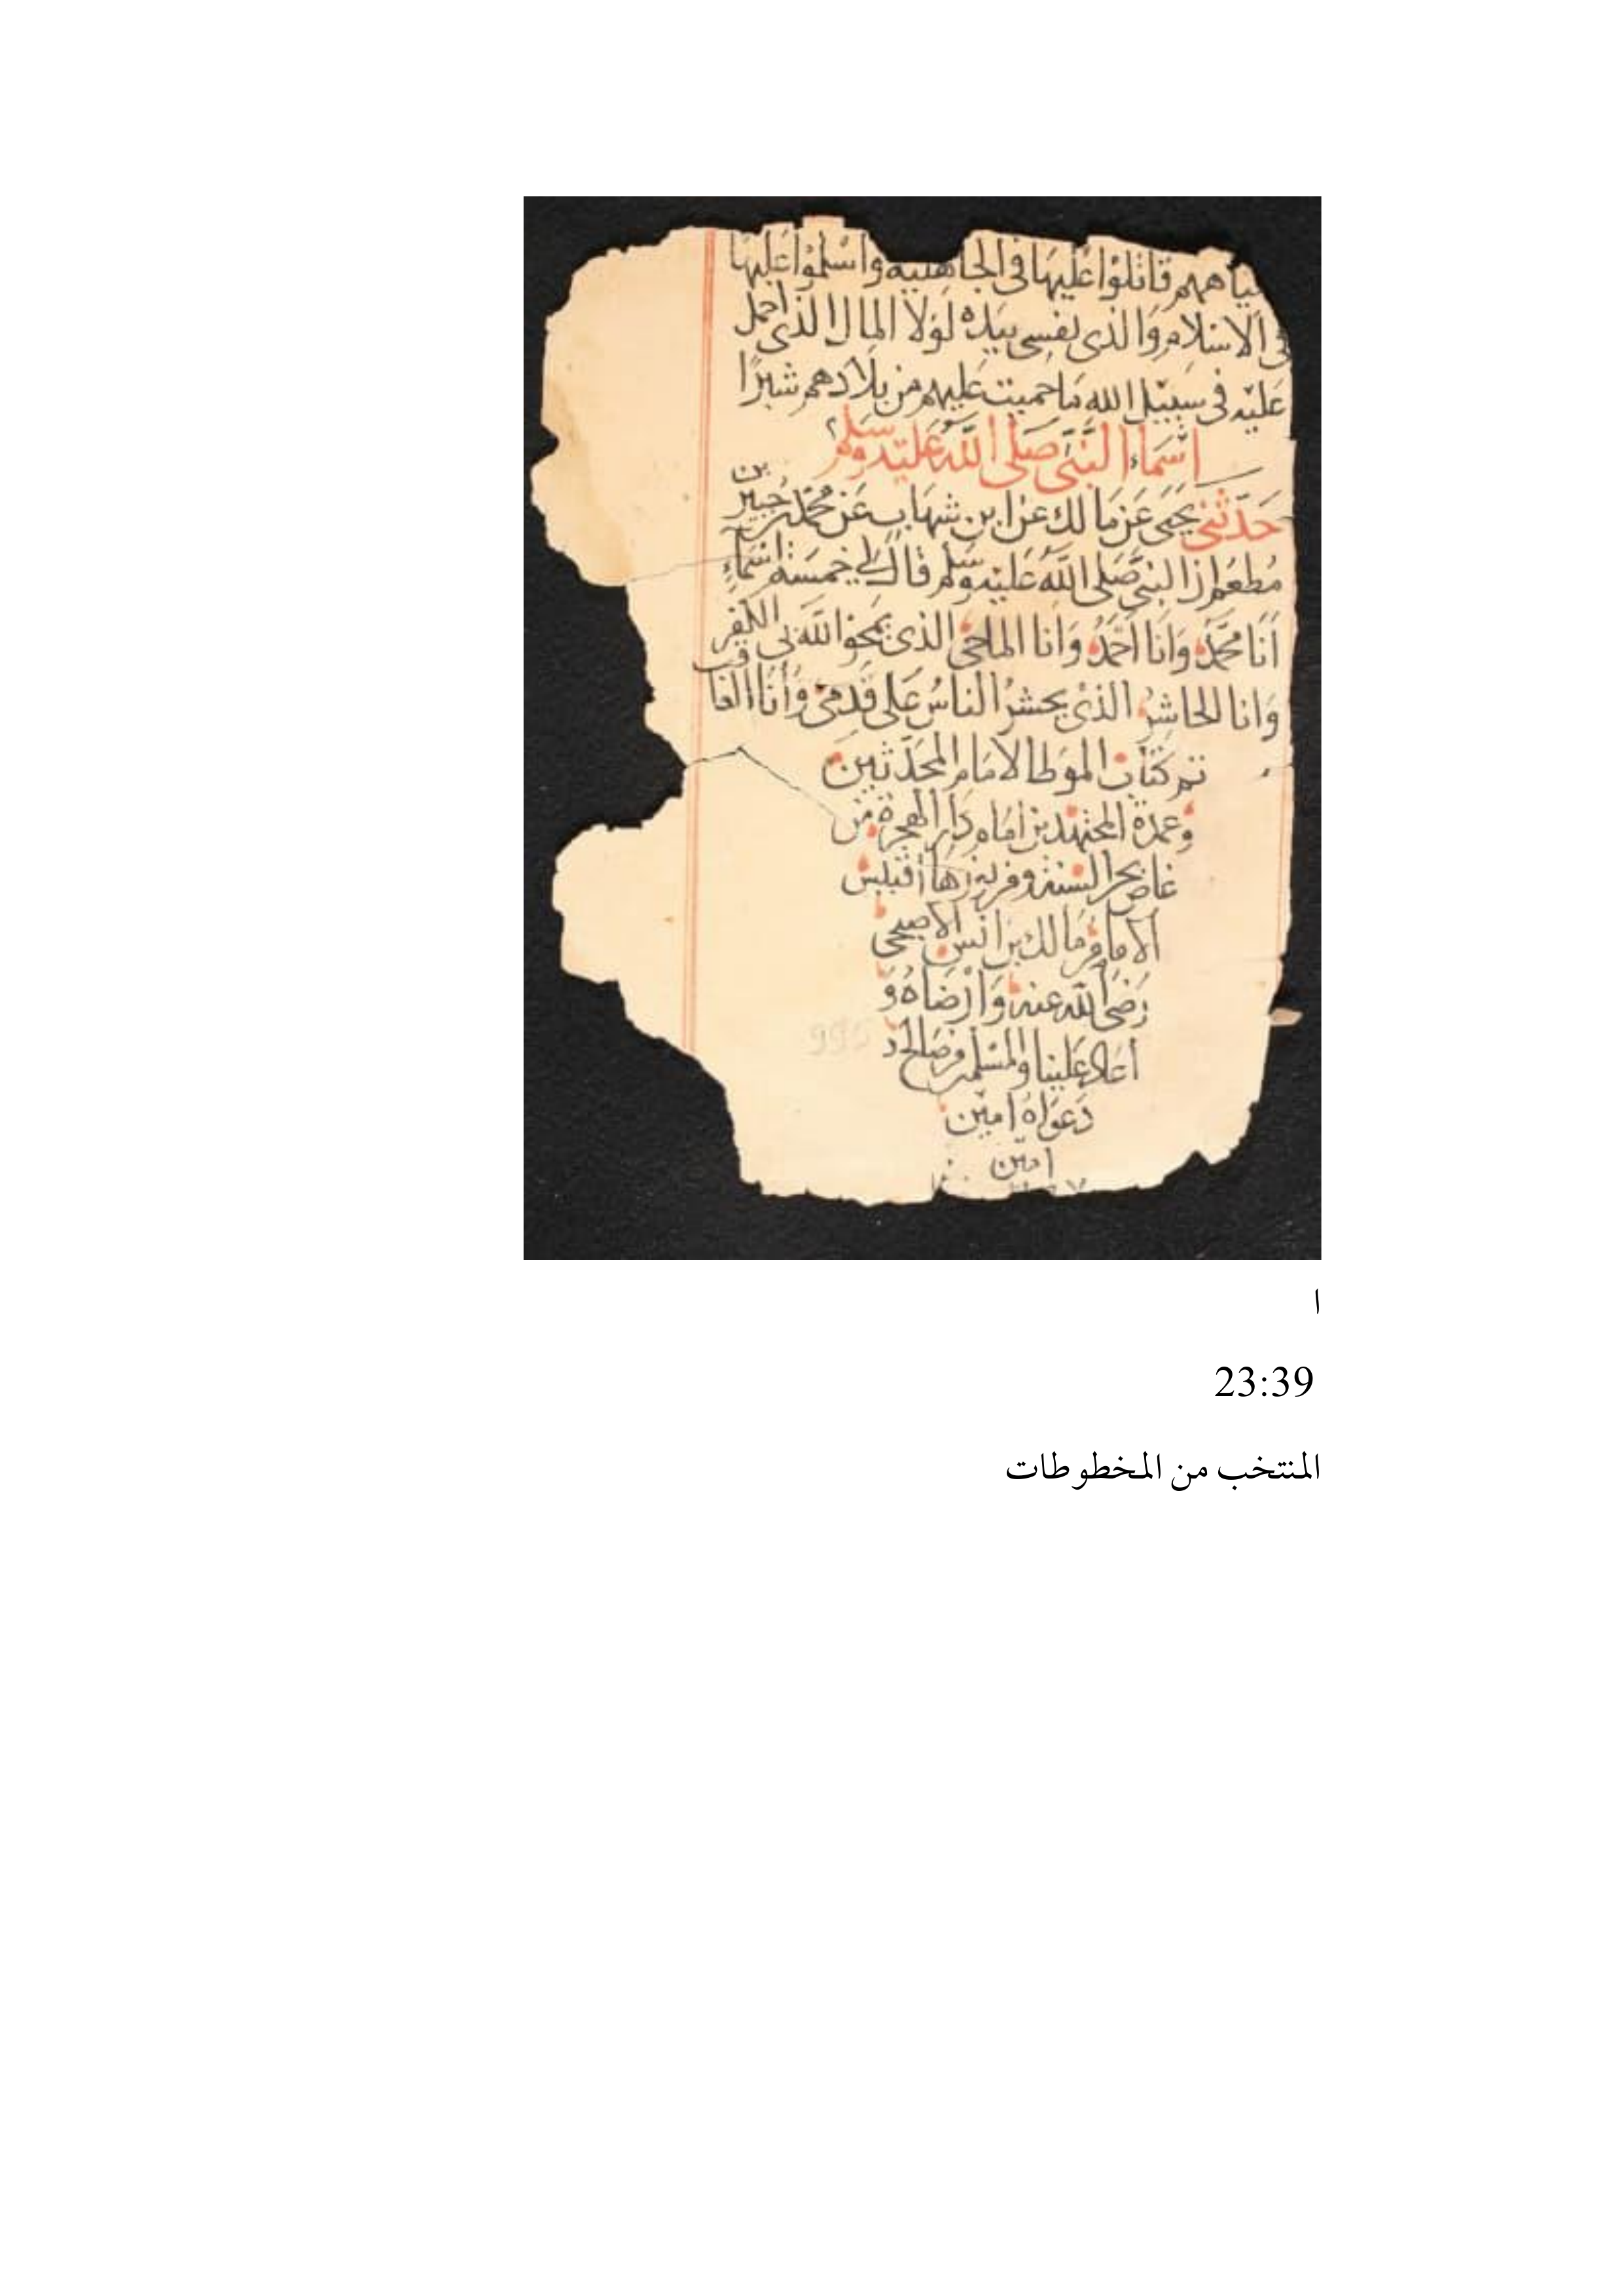 مياههم قاتلوا عليها في الجاهلية واسلموا عليها
في الاسلام والذى نفسى بيده لولا المال الذى احمل
عليه فى سبيل الله ما حميت عليهم من بلادهم شبرًا
اسماء النبى صلى الله عليه وسلم
حدثنى يحيى عن مالك عن ابن شهاب عن محمد بن جبير بن
مطعم ان النبى صلى الله عليه وسلم قال لي خمسة اسماء
انا محمد وانا احمد وانا الماحى الذى يمحوا الله بى الكفر
وانا الحاشر الذى يحشر الناس على قدمى وأنا العاقب
تم كتاب الموطا لامام المحدثين
وعمدة المجتهدين امام دار الهجرة من
غاص بحر السنة
الامام مالك بن انس الاصبحى
رضى الله عنه وارضاه و
أعاد علينا والمسلمين صالح د
دعواه امين
امين
ا
23:39
المنتخب من المخطوطات